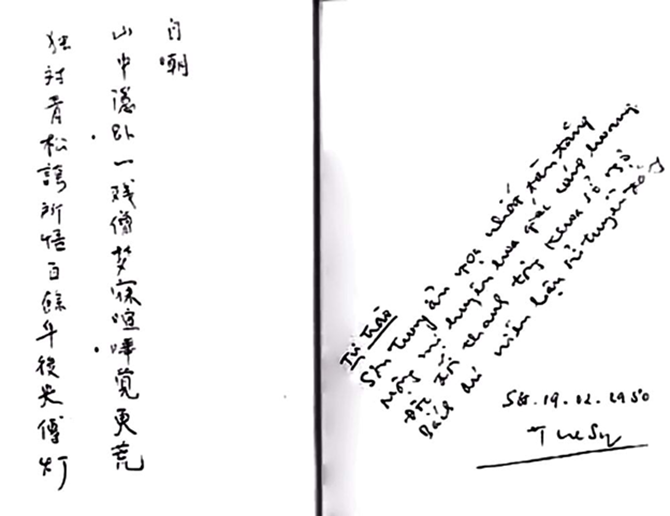 自嘲
山中隱卧一残僧梦寐喧嘩覚更荒
独対青松誇所悟百餘年後失傳灯
Tự Trào
Sơn trung ẩn ngọa nhất tàn tăng
Mộng mị huyên hoa giác cánh hoang
Độc đối thanh tùng khoa sở ngộ
Bách dư niên hậu thất truyền đăng
19.02.
Tuệ Sỹ